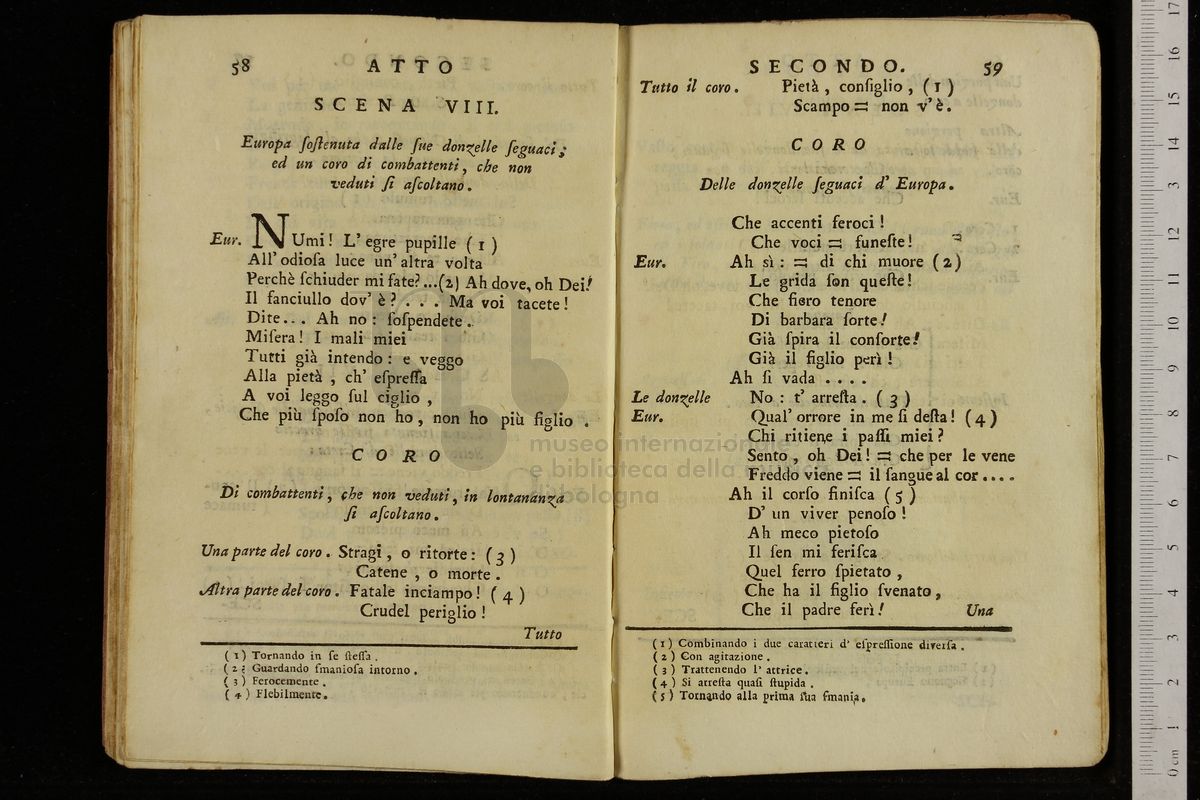 58 ATTO
SCENA VIII.
Europa ſoſtenuta dalle ſue donzelle ſeguaci;
ed un coro di combattenti, che non
veduti ſi aſcoltano.
Eur. NUmi! L' egre pupille (1)
All' odioſa luce un' altra volta
Perchè ſchiuder mi fate?...(2) Ah dove, oh Dei!
Il fanciullo dov' è? . . . Ma voi tacete!
Dite... Ah no: ſoſpendete.
Miſera! I mali miei
Tutti già intendo: e veggo
Alla pietà, ch' eſpreſſa
A voi leggo ſul ciglio,
Che più ſpoſo non ho, non ho più figlio.
CORO
Di combattenti, che non veduti, in lontananza
ſi aſcoltano.
Una parte del coro. Stragi, o ritorte: (3)
Catene, o morte.
Altra parte del coro. Fatale inciampo! (4)
Crudel periglio!
Tutto
(1) Tornando in ſe ſteſſa.
(2) Guardando ſmanioſa intorno.
(3) Ferocemente.
(4) Flebilmente.
SECONDO. 59
Tutto il coro. Pietà, conſiglio, (1)
Scampo = non v' è.
CORO
Delle donzelle ſeguaci d' Europa.
Che accenti feroci!
Che voci = funeſte!
Eur. Ah sì: = di chi muore (2)
Le grida ſon queſte!
Che fiero tenore
Di barbara ſorte!
Già ſpira il conſorte!
Già il figlio perì!
Ah ſi vada . . . .
Le donzelle No: t' arreſta. (3)
Eur. Qual' orrore in me ſi deſta! (4)
Chi ritiene i paſſi miei?
Sento, oh Dei! = che per le vene
Freddo viene = il ſangue al cor....
Ah il corſo finiſca (5)
D' un viver penoſo!
Ah meco pietoſo
Il ſen mi feriſca
Quel ferro ſpietato,
Che ha il figlio ſvenato,
Che il padre ferì! Una
(1) Combinando i due caratteri d' eſpreſſione diverſa.
(2) Con agitazione.
(3) Trattenendo l' attrice.
(4) Si arreſta quaſi ſtupida.
(5) Tornando alla prima ſua ſmania.
museo internazionale
e biblioteca della musica
di bologna
0 cm 1 2 3 4 5 6 7 8 9 10 11 12 13 14 15 16 17